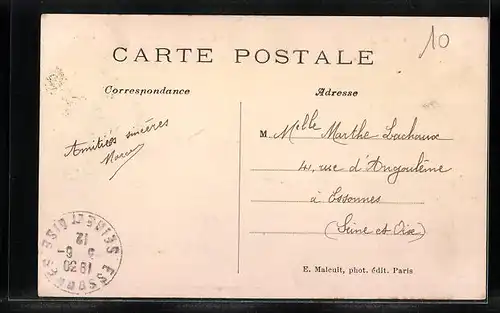 10
CARTE POSTALE
Correspondance
Adresse
Amitiés sincères
M Melle Marthe Lachaux
4, rue d'Angoulême
à Essonnes
(Seine et Oise)
SEINE ET OISE
12
6-
18 30
ESSONNES
E. Malcuit, phot. édit. Paris